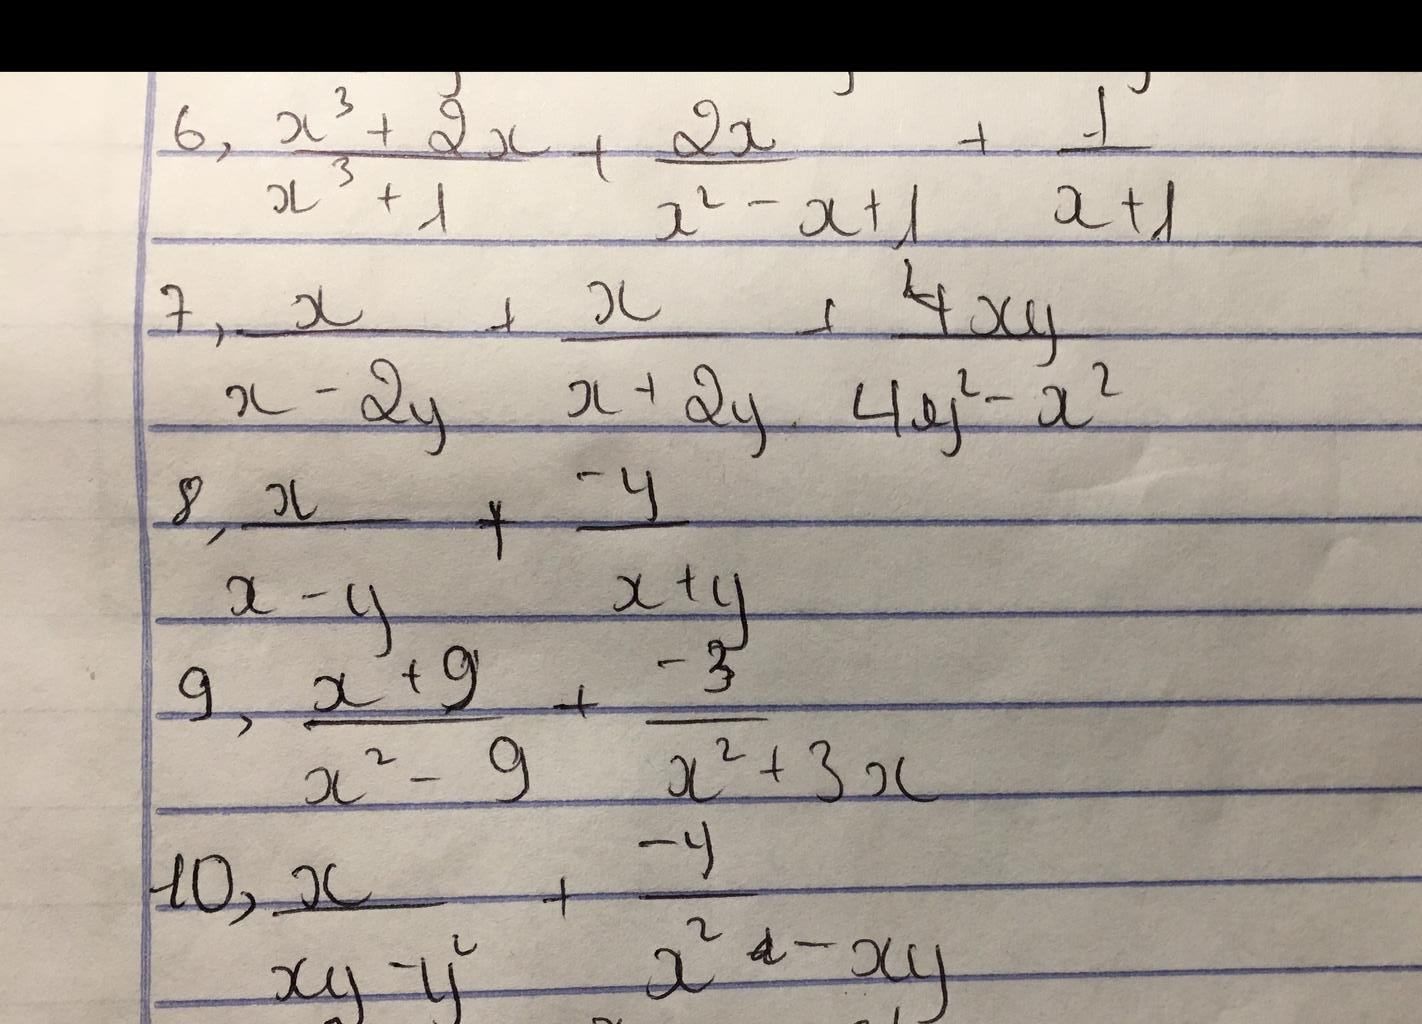 6, x³ + 2x / x³ + 1 + 2x / x² - x + 1 + 1 / x + 1
7, x / x - 2y + x / x + 2y + 4xy / 4y² - x²
8, x / x - y + -y / x + y
9, x + 9 / x² - 9 + -3 / x² + 3x
10, x / xy - y² + -y / x² - xy